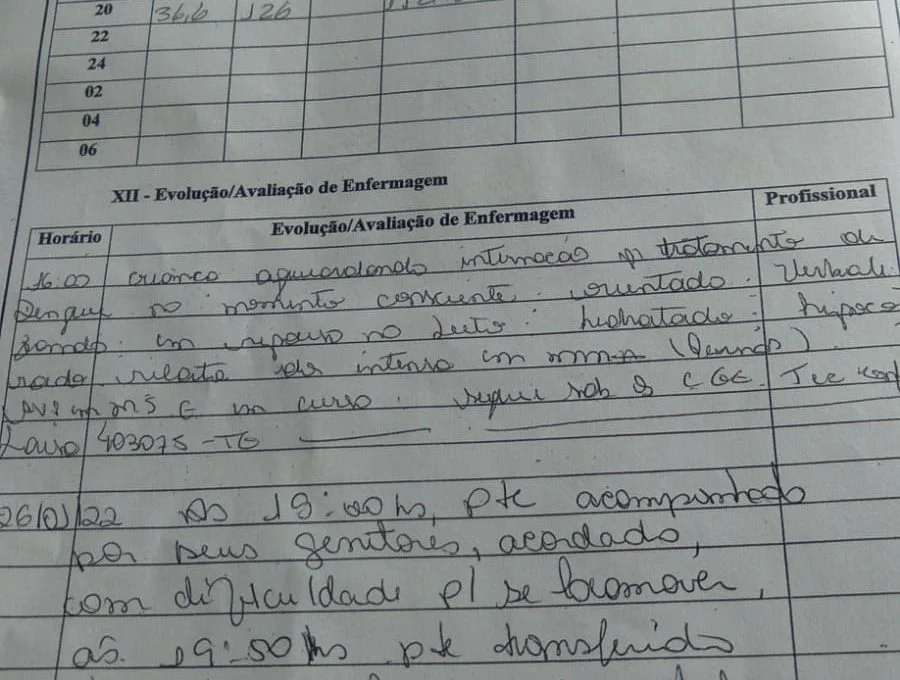 20 36,6 126
22
24
02
04
06
XII - Evolução/Avaliação de Enfermagem
Horário Evolução/Avaliação de Enfermagem Profissional
16:00 criança aguardando internação p/ tratamento de
Dengue no momento consciente. orientado. Verbali
zando. em repouso no leito. hidratado. hipoco
rado relata dor intensa em (pernas).
AVP em MSE em curso. segue sob os CGE. Tec
403075-TE
26/01/22 Às 19:00hs, pte acompanhado
por seus genitores, acordado,
com dificuldade p/ se locomover,
as. 19:50 hs pte transferido